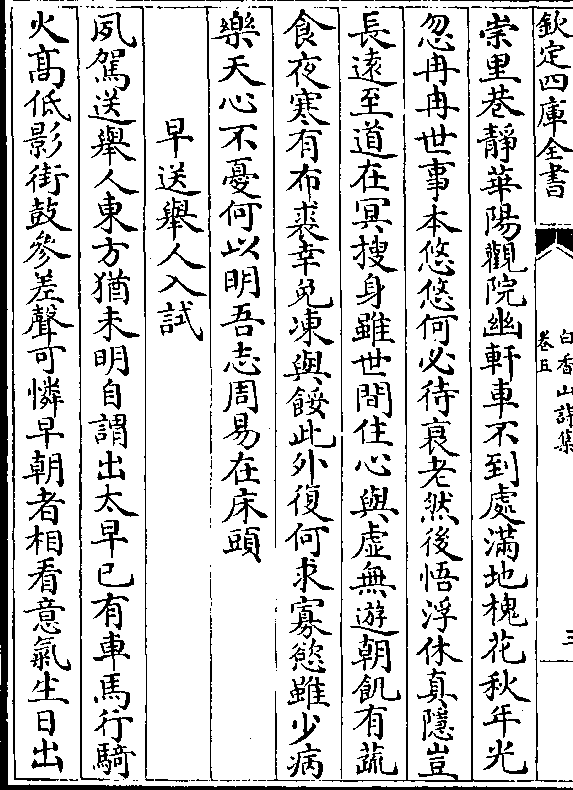 欽定四庫全書
白香山詩集
卷五
三
崇里巷靜華陽觀院幽軒車不到處滿地槐花秋年光
忽冉冉世事本悠悠何必待衰老然後悟浮休真隱豈
長遠至道在冥搜身雖世間住心與虛無遊朝飢有蔬
食夜寒有布裘幸免凍與餒此外復何求寡慾雖少病
樂天心不憂何以明吾志周易在床頭
早送舉人入試
夙駕送舉人東方猶未明自謂出太早已有車馬行騎
火高低影街鼓參差聲可憐早朝者相看意氣生日出